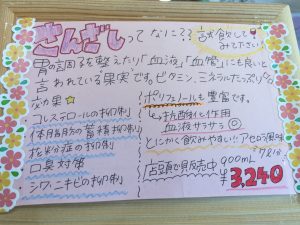 さんざしって なに??
試飲して
みて下さい!
胃の調子を整えたり「血液」「血管」にも良いと
言われている果実です。ビタミン、ミネラルたっぷり
効果☆
ポリフェノールも豊富です。
コレステロールの抑制
体脂肪の蓄積抑制
花粉症の抑制
口臭対策
シワ、ニキビの抑制
→抗酸化作用
血液サラサラ◎
とにかく飲みやすい!!アセロラ風味
店頭で販売中
900mℓ
¥3,240